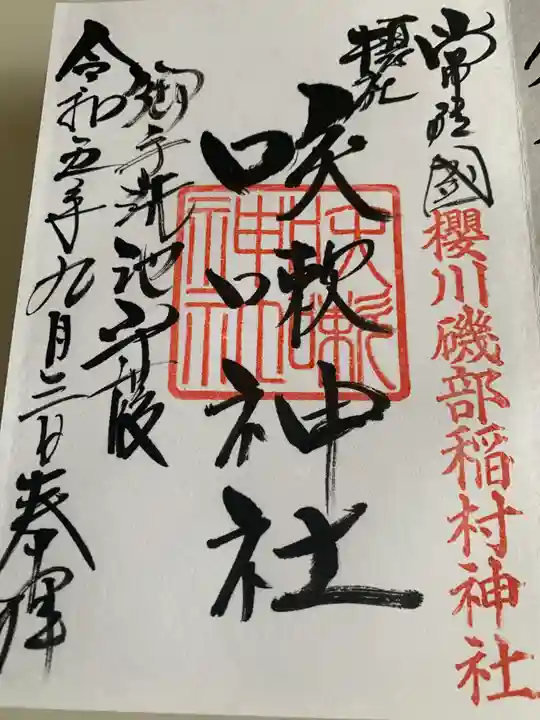 常陸國櫻川磯部稲村神社
攝社
咳嗽神社
咳嗽
神社
御手洗池守護
令和五年九月三日奉拝